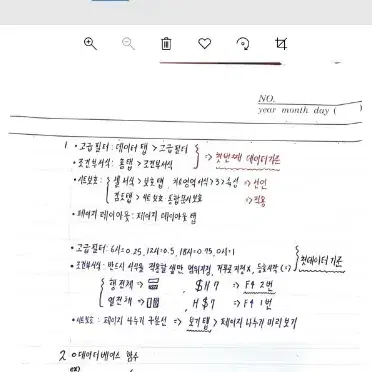 NO.
year month day ( )
1 • 고급필터 : 데이터 탭 > 고급필터
• 조건부서식 : 홈탭 > 조건부서식
=> 첫번째 데이터기준
• 시트보호 : 셀 서식 > 보호 탭, 차트영역서식 > 속성
검토탭 > 시트 보호·통합문서보호 => 적용
• 페이지 레이아웃 : 페이지 레이아웃 탭
• 고급필터 : 6시=0.25, 12시=0.5, 18시=0.75, 0시=1
• 조건부서식 : 반드시 서식을 적용할 셀만 범위지정, 등호시작 (=) 첫데이터 기준
행 전체 => , $H7 => F4 2번
열전체 => , H$7 => F4 1번
• 시트보호 : 페이지 나누기 구분선 => 보기 탭 > 페이지 나누기 미리 보기
2 o 데이터베이스 함수